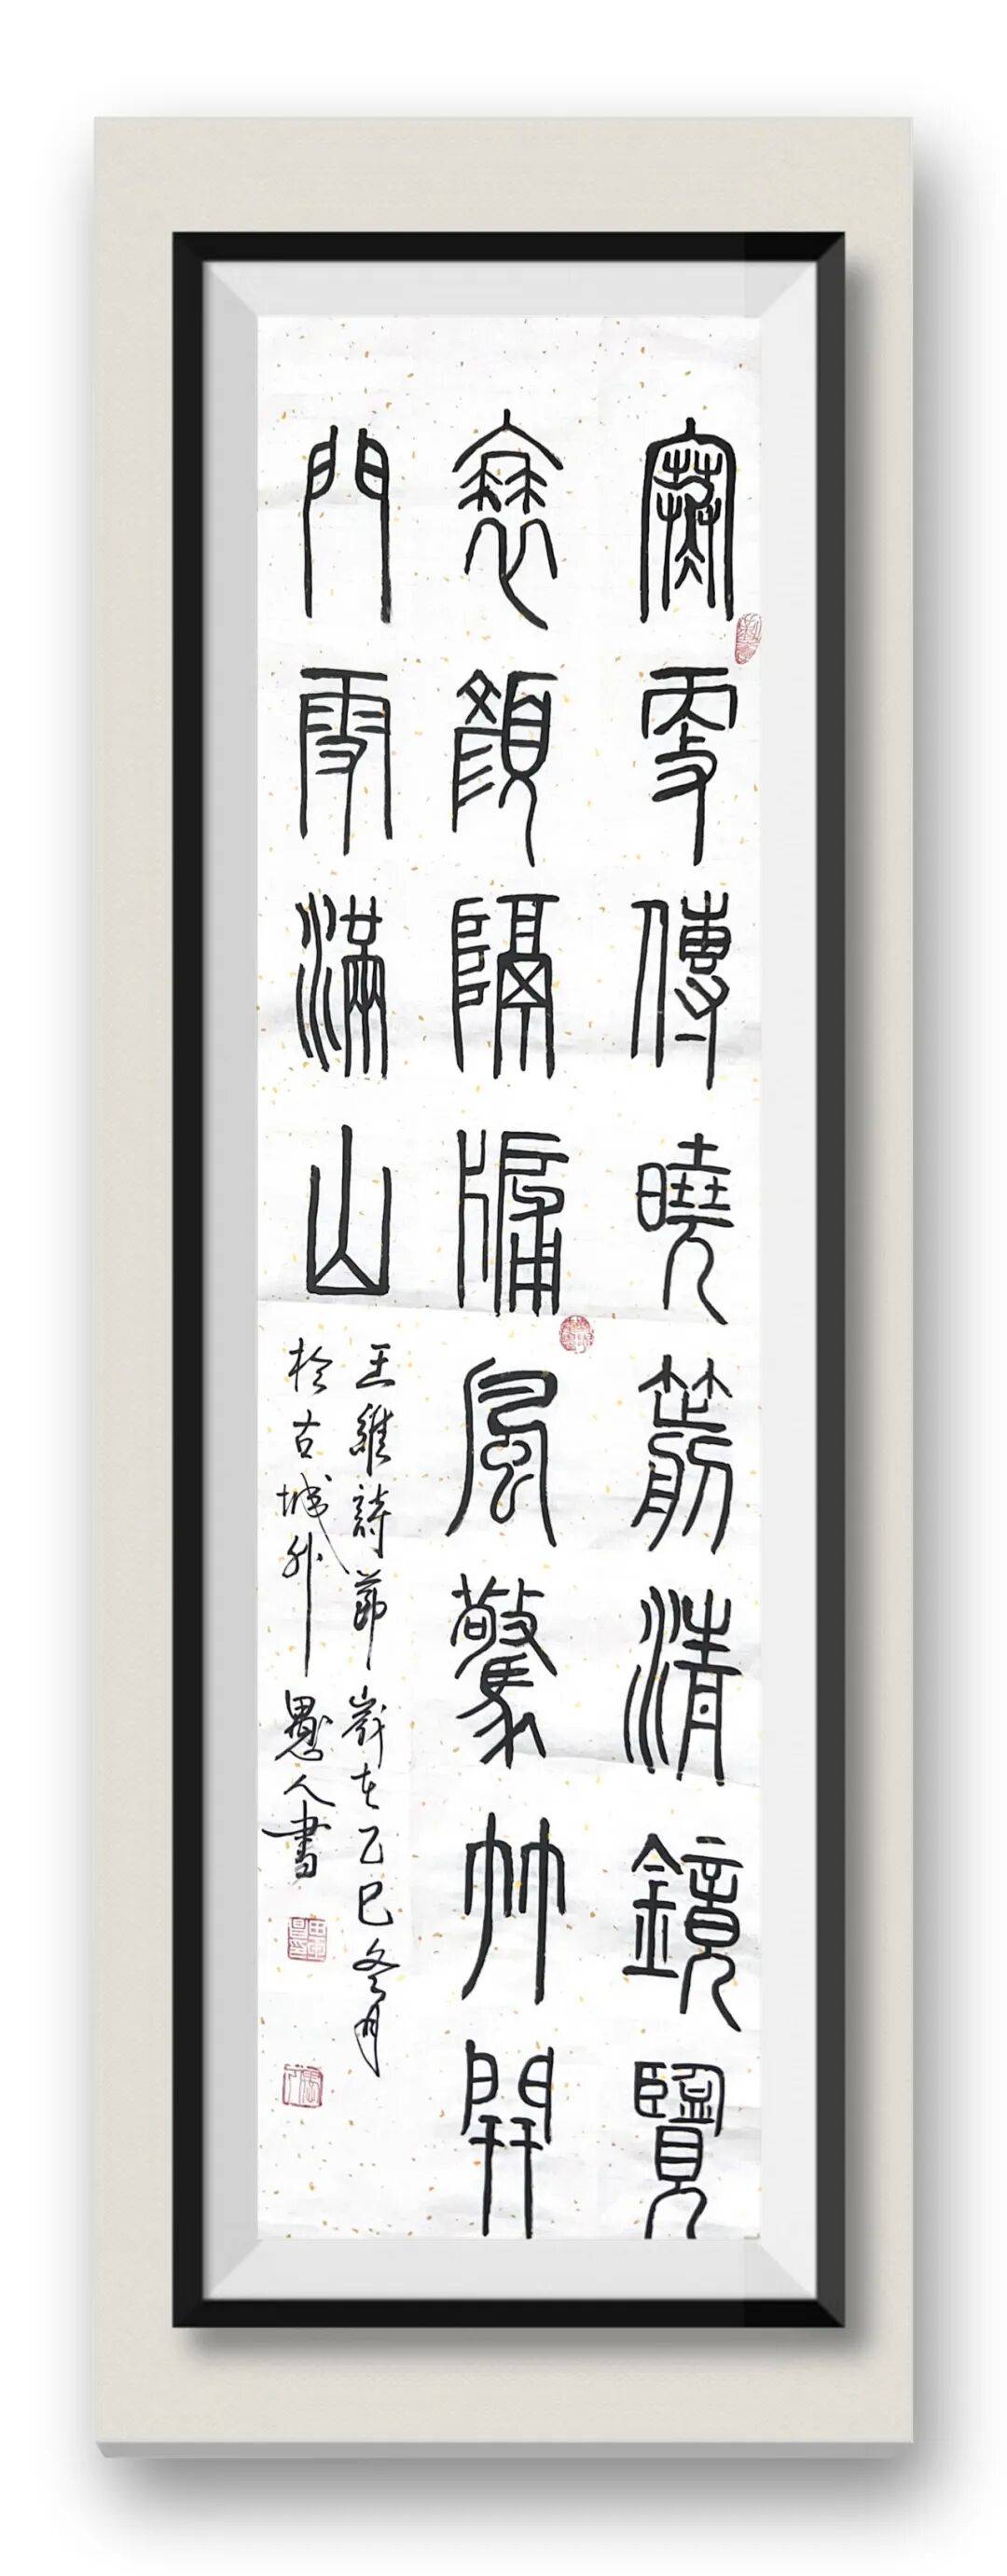 寒更傳曉箭清鏡覽
衰顏隔牖風驚竹開
門雪滿山
王維詩節 歲在乙巳冬月
於古城外 愚人書